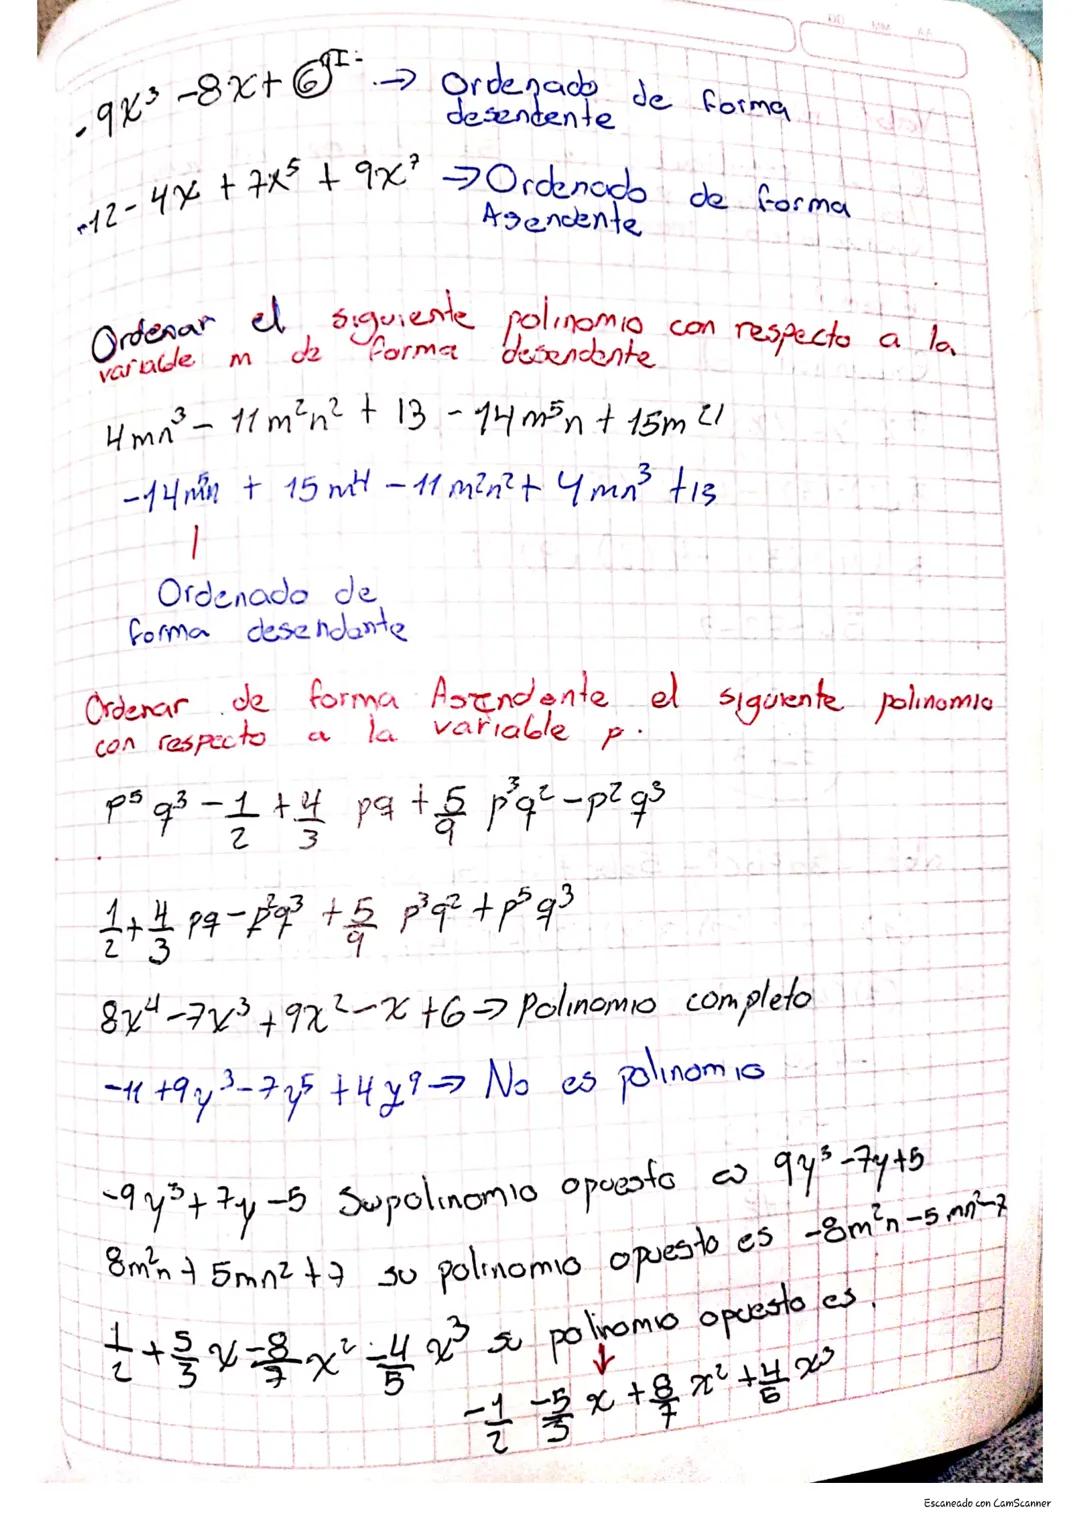 DD MM AA
-9x³ -8x + 6 TI. → Ordenado de forma
desendente
-12 - 4x + 7x⁵ + 9x⁷ → Ordenado de forma
Asendente
Ordenar el siguiente polinomio con respecto a la
variable m de forma desendente
4mn³ - 11m²n² + 13 - 14m⁵n + 15m⁴
-14m⁵n + 15m⁴ - 11m²n² + 4mn³ + 13
Ordenado de
forma desendente
Ordenar de forma Asendente el siguiente polinomio
con respecto a la variable p.
p⁵q³ - 1/2 + 4/3 pq + 5/9 p³q² - p²q³
1/2 + 4/3 pq - p²q³ + 5/9 p³q² + p⁵q³
8x⁴ - 7x³ + 9x² - x + 6 → Polinomio completo
-11 + 9y³ - 7y⁵ + 4y⁹ → No es polinomio
-9y³ + 7y - 5 Su polinomio opuesto es 9y³ - 7y + 5
8m²n + 5mn² + 7 su polinomio opuesto es -8m²n - 5mn² - 7
1/2 + 5/3 x - 8/7 x² - 4/5 x³ su polinomio opuesto es.
↓
-1/2 - 5/3 x + 8/7 x² + 4/5 x³
Escaneado con CamScanner